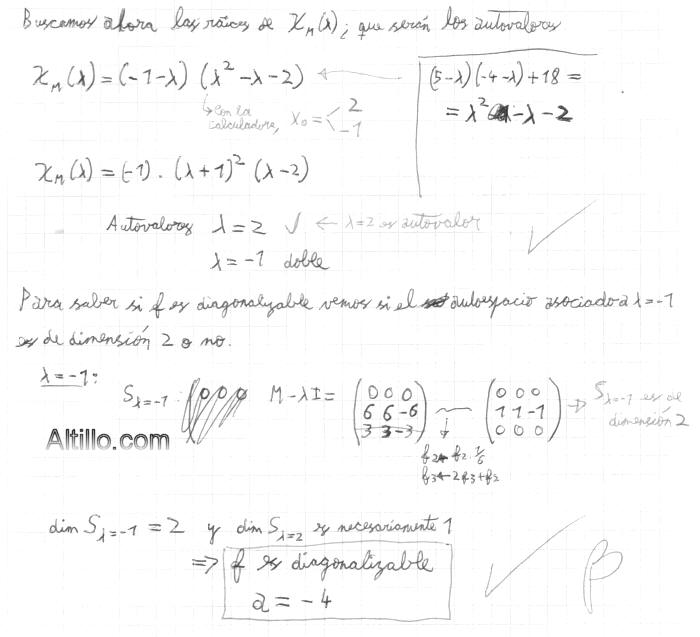 Buscamos ahora las raíces de X_M(λ), que serán los autovalores
X_M(λ) = (-1-λ) (λ² - λ - 2) ←
(5-λ)(-4-λ)+18 =
= λ² - λ - 2
↳ Con la calculadora, X₀ = < 2
-1
X_M(λ) = (-1) · (λ+1)² (λ-2)
Autovalores λ = 2 ✓ ← λ=2 es autovalor
λ = -1 doble
Para saber si f es diagonalizable vemos si el autoespacio asociado a λ=-1
es de dimensión 2 o no.
λ=-1:
S_λ=-1 : M - λI = (0 0 0) ~ (0 0 0) → S_λ=-1 es de
(6 6 -6) (1 1 -1) dimensión 2
(3 3 -3) (0 0 0)
Altillo.com
f₂ ← f₂·1/6
f₃ ← 2f₃+f₂
dim S_λ=-1 = 2 y dim S_λ=2 es necesariamente 1
⇒ f es diagonalizable
a = -4
β